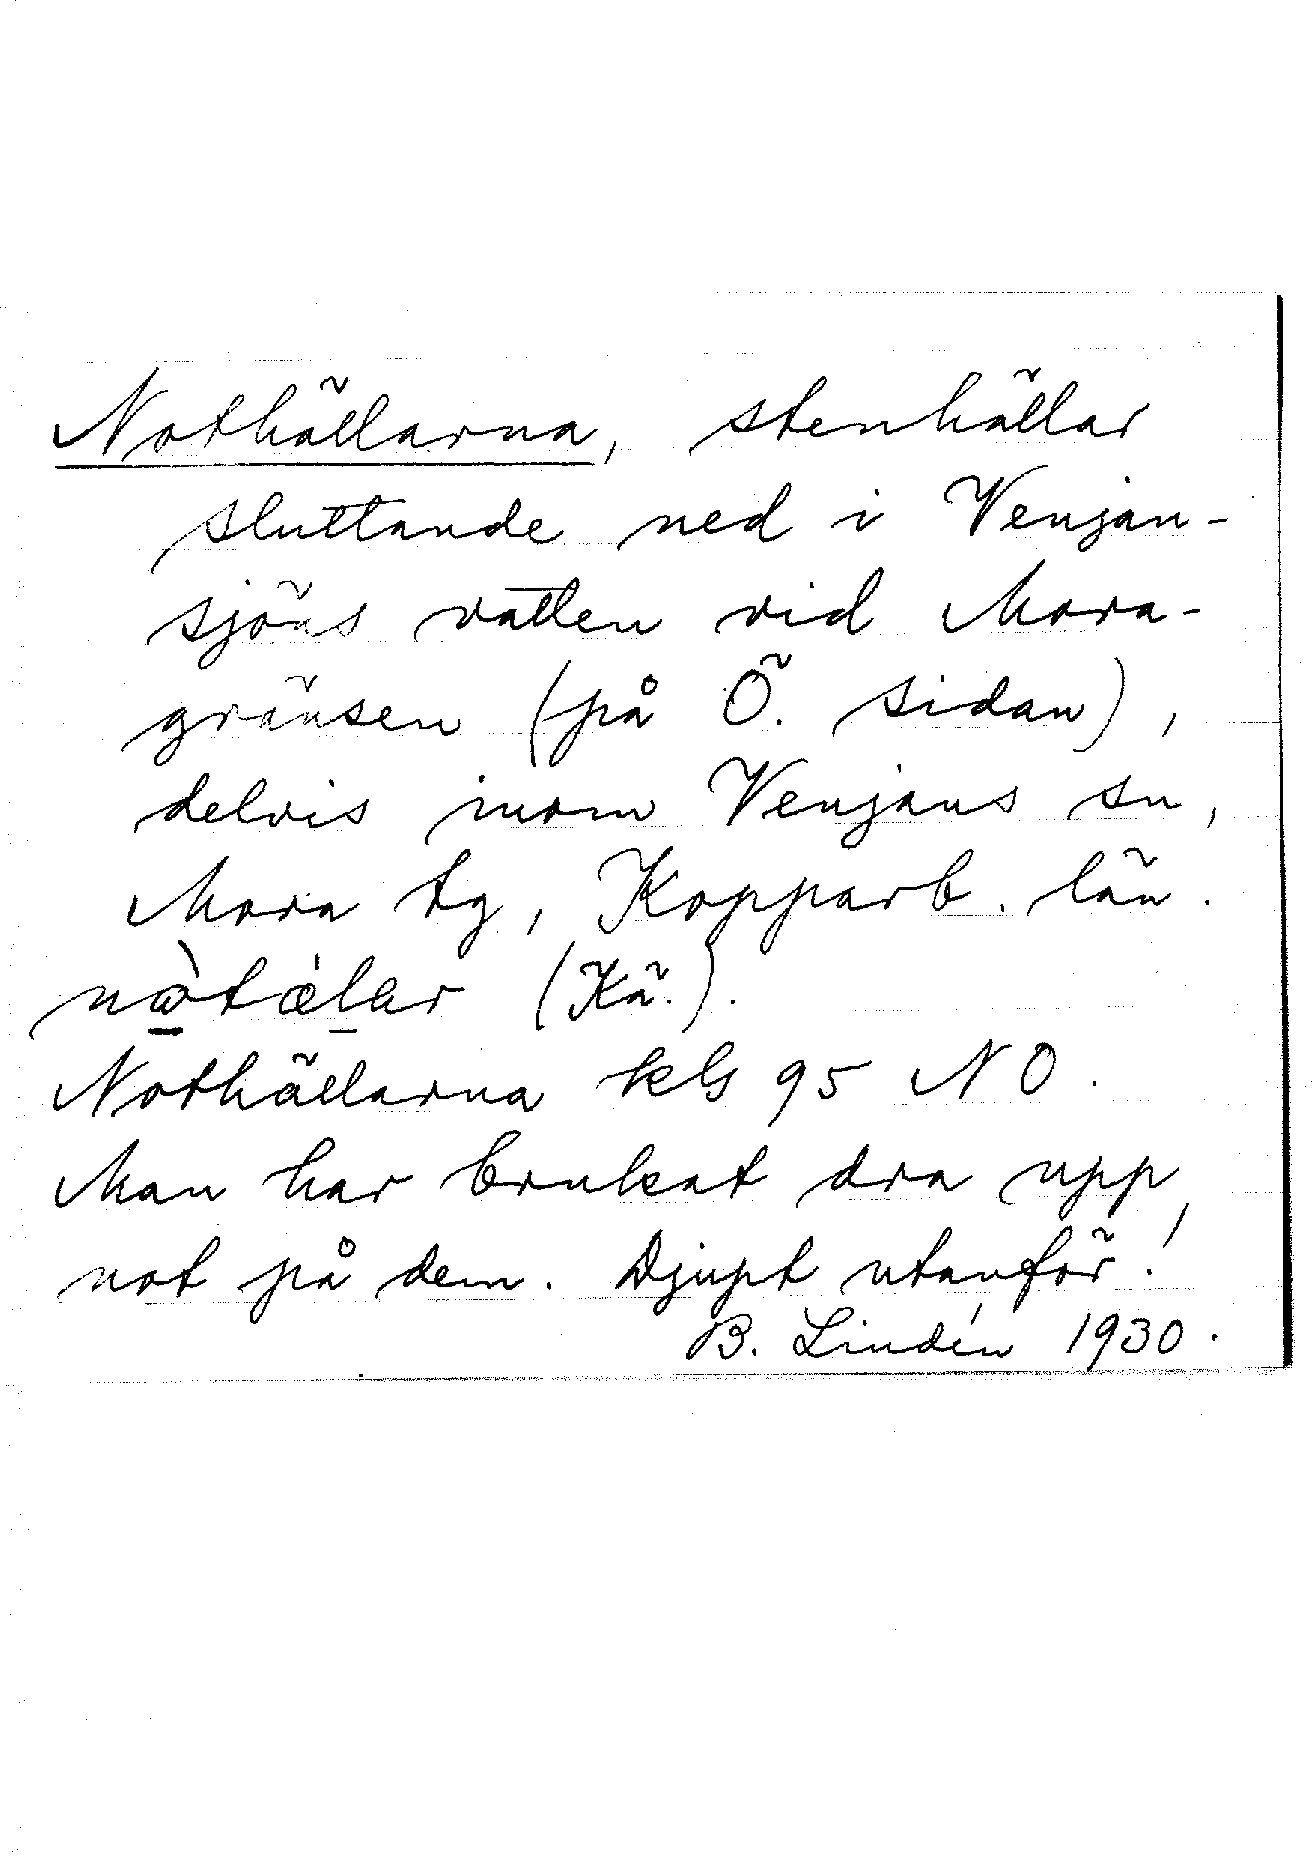 Nothällarna, stenhällar
sluttande ned i Venjan-
sjöns vatten vid Mora-
gränsen (på Ö. sidan),
delvis inom Venjans sn,
Mora tg, Kopparb. län.
(Kä.).
Nothällarna kbl 95 NO.
Man har brukat dra upp
not på dem. Djupt utanför!
B. Lindén 1930.